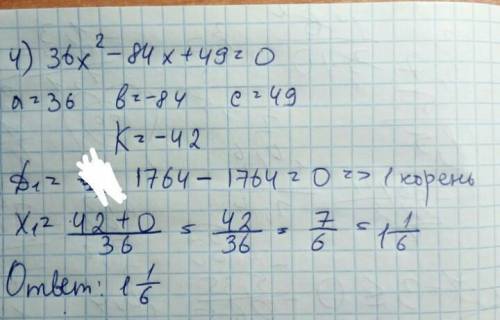 4) 36x² - 84x + 49 = 0
a = 36 b = -84 c = 49
K = -42
D₁ = 1764 - 1764 = 0 => 1 корень
X₁ = (42 + 0)/36 = 42/36 = 7/6 = 1 1/6
Ответ: 1 1/6